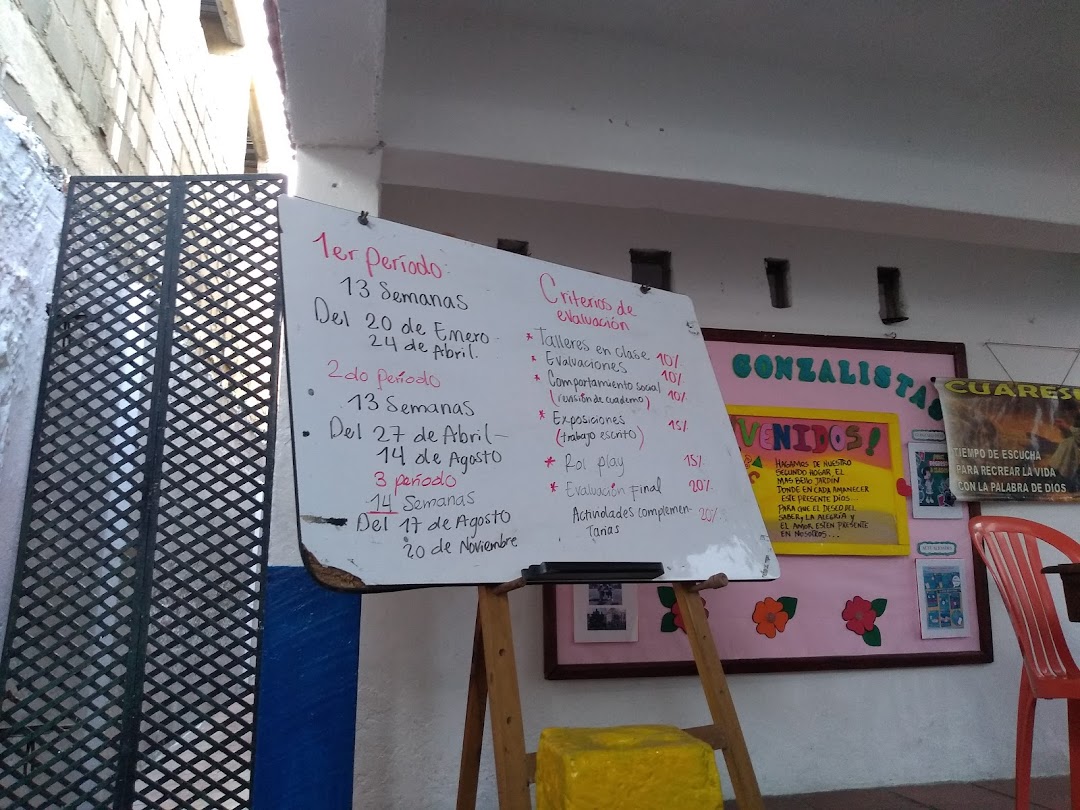 1er período:
13 Semanas
Del 20 de Enero -
24 de Abril.
2do período
13 Semanas
Del 27 de Abril -
14 de Agosto
3 período
14 Semanas
Del 17 de Agosto
20 de Noviembre
Criterios de
evaluación
* Talleres en clase 10%
* Evaluaciones 10%
* Comportamiento social 10%
(revisión de cuaderno)
* Exposiciones 15%
(trabajo escrito)
* Rol play 15%
* Evaluación Final 20%
Actividades complemen- 20%
tarias
GONZALISTAS
VENIDOS!
HAGAMOS DE NUESTRO
SEGUNDO HOGAR EL
MAS BELLO JARDÍN
DONDE EN CADA AMANECER
ESTE PRESENTE DIOS...
PARA QUE EL DESEO DEL
SABER, LA ALEGRIA Y
EL AMOR ESTEN PRESENTE
EN NOSOTROS...
CUARES
TIEMPO DE ESCUCHA
PARA RECREAR LA VIDA
CON LA PALABRA DE DIOS